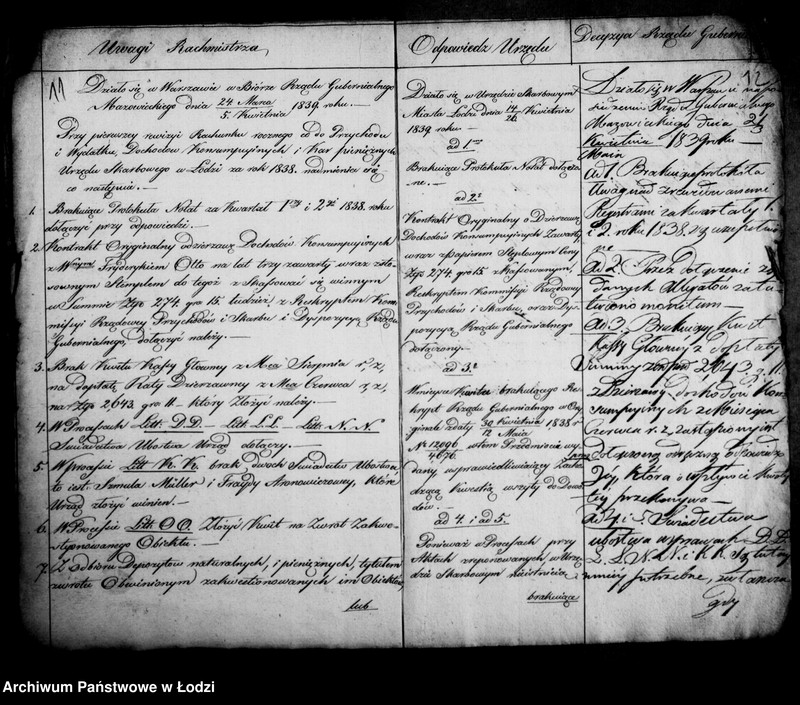 Uwagi Rachmistrza,
11
Działo się w Warszawie w Biórze Rządu Gubernialnego
Mazowieckiego dnia 24 Marca / 5 Kwietnia 1839. roku.—
Przy pierwszej rewizyi Rachunku rocznego co do Przychodu
i Wydatku, Dochodów Konsumpcyjnych i Kar pieniężnych
Urzędu Skarbowego w Łodzi za rok 1838. nadmienia się
co następuie.—
1. Brakuiące Protokuła Notat za Kwartał 1szy i 2gi 1838. roku
dołączyć przy odpowiedzi.—
2. Kontrakt Oryginalny o dzierżawę Dochodów Konsumpcyjnych
z Fryderykiem Otto na lat trzy zawarty wraz
Stemplem do tegoż z Skassować się winnym
w Summie Złp. 274. gro 15. tudzież z Reskryptem Kom-
missyi Rządowey Przychodów i Skarbu i Dyspozycyą Rządu
Gubernialnego, dołączyć należy.—
3. Brak Kwitu Kassy Główney z M-ca Sierpnia r. z,
na dopłatę Raty Dzierżawney z M-ca Czerwca r, z,
na Złp 2,643. gro 11.— który złożyć należy.—
4. W Processach Litt: D.D.— Litt L.L.— Litt: N.N.
Świadectwa Ubóstwa Urząd dołączy.—
5. W processie Litt K.K. brak dwóch Świadectw Ubóstwa,
to iest: Samula Müller i Aronowiczowy, które
Urząd złożyć winien.—
6. W Processie Litt O O. Złożyć Kwit na Zwrot Zakwe-
styonowanego Obiektu.—
7. Z odbioru Depozytów naturalnych, i pieniężnych, tytułem
zwrotu Obwinionym zakwestionowanych im Obiektów,
lub
Odpowiedz Urzędu
Działo się w Urzędzie Skarbowym
Miasta Łodzi dnia 14/26 Kwietnia
1839. roku—
ad 1mo
Brakuiące Protokuła Notat dołączo-
ne.—
ad 2o
Kontrakt Oryginalny o Dzierżawę
Dochodów Konsumpcyjnych Zawarty
wraz z papierem Steplowym Ceny
Złp 274. gro 15 skassowanym,
Reskryptem Kommissyi Rządowey
Przychodów i Skarbu, oraz Dys-
pozycyą Rządu Gubernialnego
dołączony.—
ad 3o
W mieysce Kwitu brakuiącego Re-
skrypt Rządu Gubernialnego w Ory-
ginale z daty 30 Kwietnia / 12 Maia 1838 r
No 12096 / 4676. w tem Przedmiocie wy-
dany usprawiedliwiaiący Zacho-
dzącą Kwestię wszyty do Dowo-
dów.—
ad 4. i ad 5.
Ponieważ w Processach przy
Aktach w Urzę-
dzie Skarbowym
brakuiące
Decyzya Rządu Gubern
12
Działo się w Warszawie na po-
siedzeniu Rządu Gubernialnego
Mazowieckiego dnia 21
Kwietnia 1839 roku—
ad 1. Brakuiące protokuła
Uwag
Registrami za kwartały 1.
i 2. roku 1838.
Ad 2. Przez dołączenie żą-
danych Allegatów zała-
twiono monitum—
ad 3. Brakuiący Kwit
Kassy Główney z dopłaty
Summy złp 2643 g. 11.
z Dzierżawy dochodów Kon-
sumpcyjnych za Miesiąc
Czerwca r. z. zastąpiony iest
o wpływie kwoty
tey przekonywa—
ad 4 i 5. Świadectwa
ubóstwa w sprawach D.D.
L.L. N.N. i K.K. są tutay
potrzebne,
gdy
Archiwum Państwowe w Łodzi